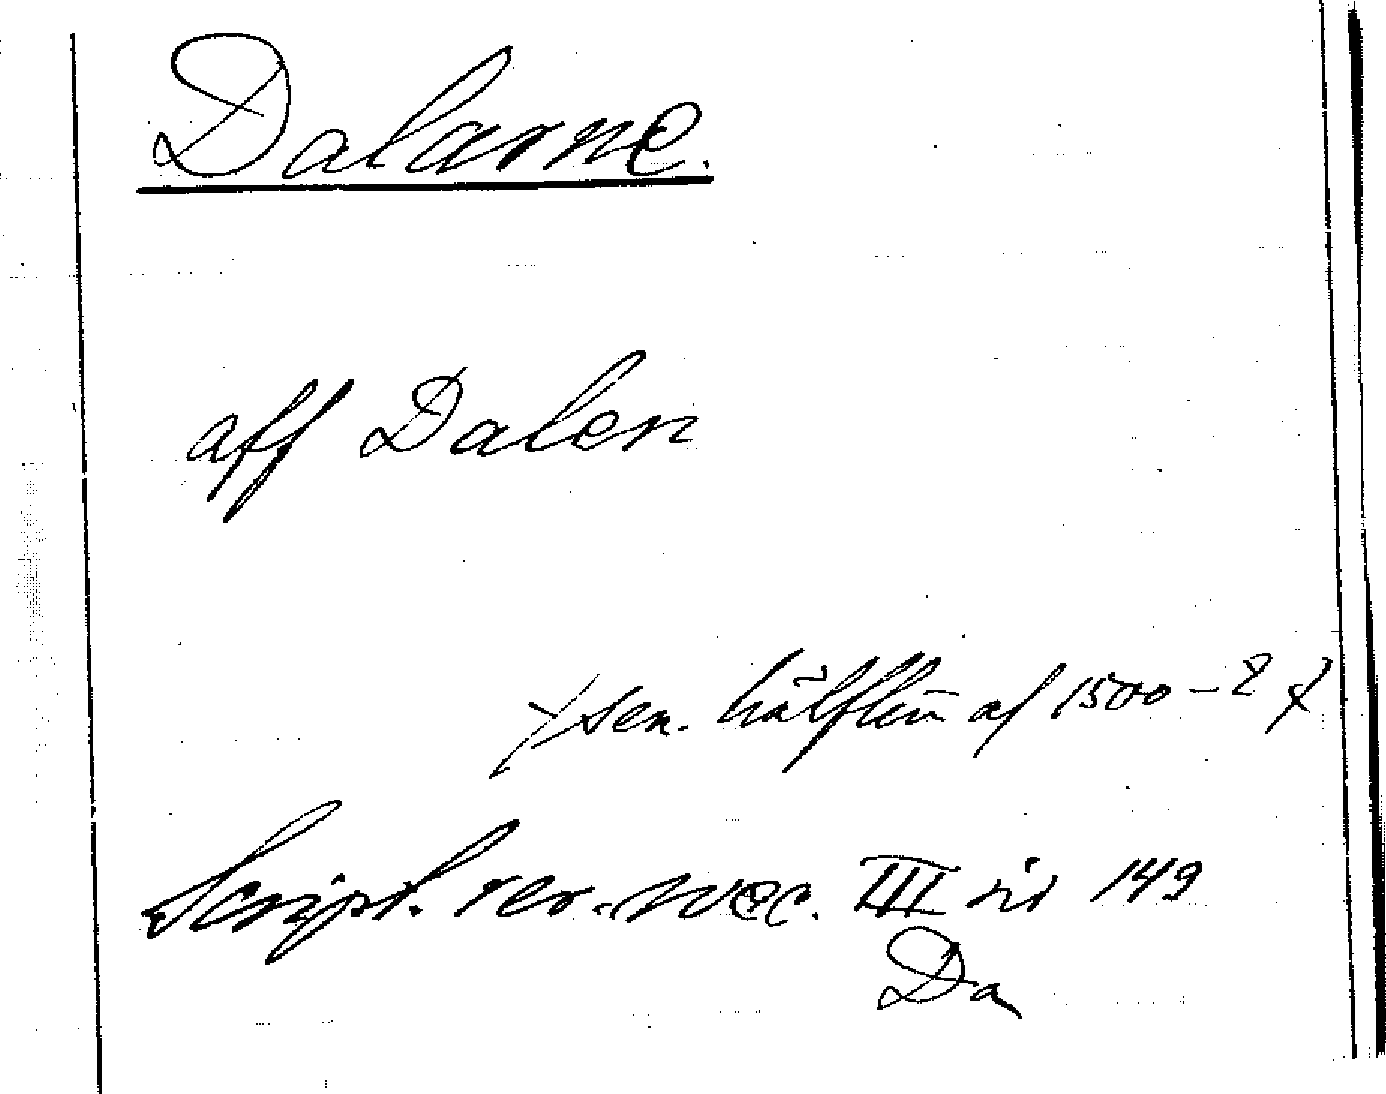 Dalarne.
aff Dalen
sen. hälften af 1500-
Script. rer. svec. III 149
Da